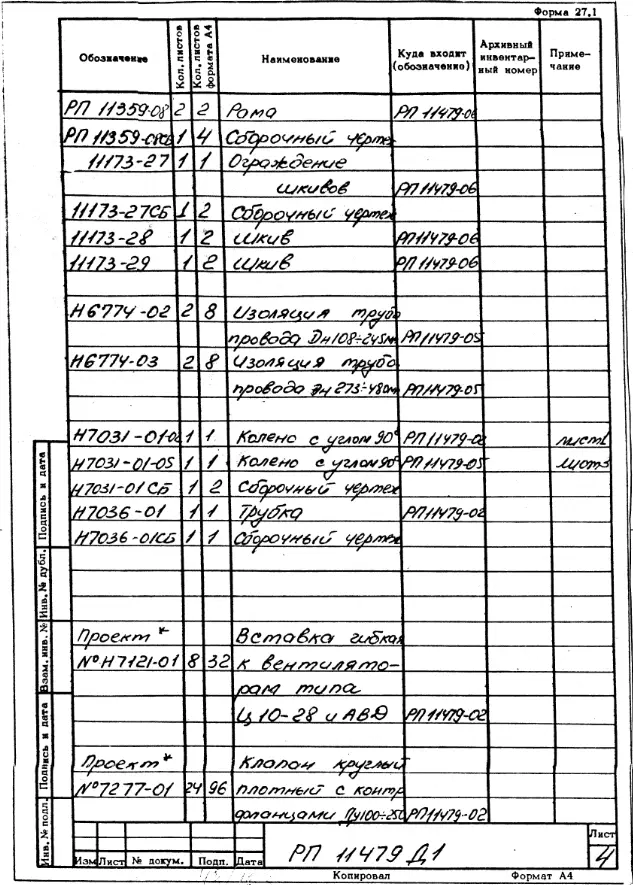 Форма 27,1
Обозначение Кол. листов Кол. листов формата А4 Наименование Куда входит (обозначение) Архивный инвентар- ный номер Приме- чание
РП 11359-08 2 2 Рама РП 11479-06
РП 11359-08СБ 1 4 Сборочный чертеж
11173-27 1 1 Ограждение
шкивов РП11479-06
11173-27СБ 1 2 Сборочный чертеж
11173-28 1 2 Шкив РП11479-06
11173-29 1 2 Шкив РП11479-06
Н6774-02 2 8 Изоляция трубо
провода Dн108÷245мм РП11479-05
Н6774-03 2 8 Изоляция трубо
провода Dн 273÷480мм РП11479-05
Н7031-01-02 1 1 Колено с углом 90° РП11479-02 лист1
Н7031-01-05 1 1 Колено с углом 90° РП11479-05 лист3
Н7031-01СБ 1 2 Сборочный чертеж
Н7036-01 1 1 Трубка РП11479-02
Н7036-01СБ 1 1 Сборочный чертеж
Проект * Вставка гибкая
№Н7121-01 8 32 к вентилято-
рам типа
Ц10-28 и АВД РП11479-02
Проект * Клапан круглый
№7277-01 24 96 плотный с контр
фланцами Ду100÷250 РП11479-02
Инв. № подл. Подпись и дата Взам. инв. № Инв. № дубл. Подпись и дата
Изм Лист № докум. Подп. Дата
РП 11479 Д1
Лист
4
Копировал Формат А4